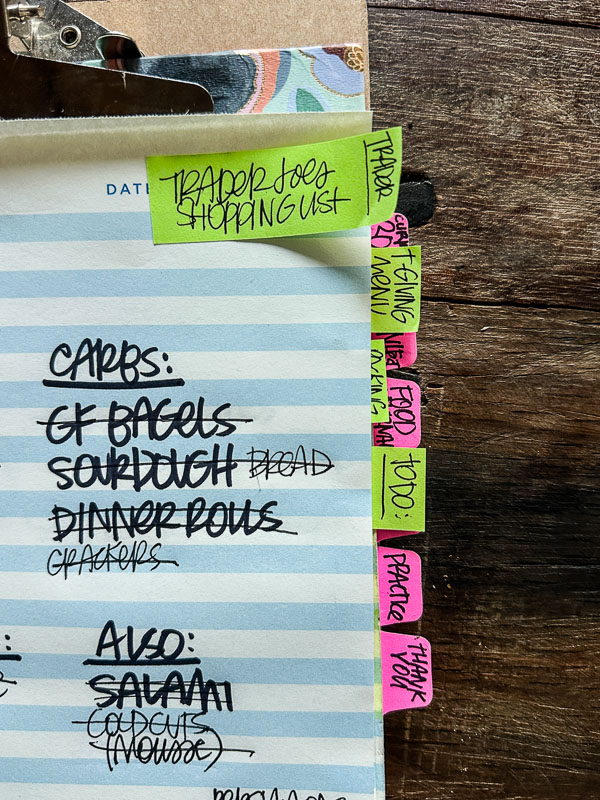 DATE
TRADER JOES
SHOPPING LIST
TRADER
T-GIVING
MENU
FOOD
TO DO:
PRACTICE
THANK
YOU
CARBS:
GF BAGELS
SOURDOUGH BREAD
DINNER ROLLS
CRACKERS
ALSO:
SALAMI
COLD CUTS
(MOUSSE)